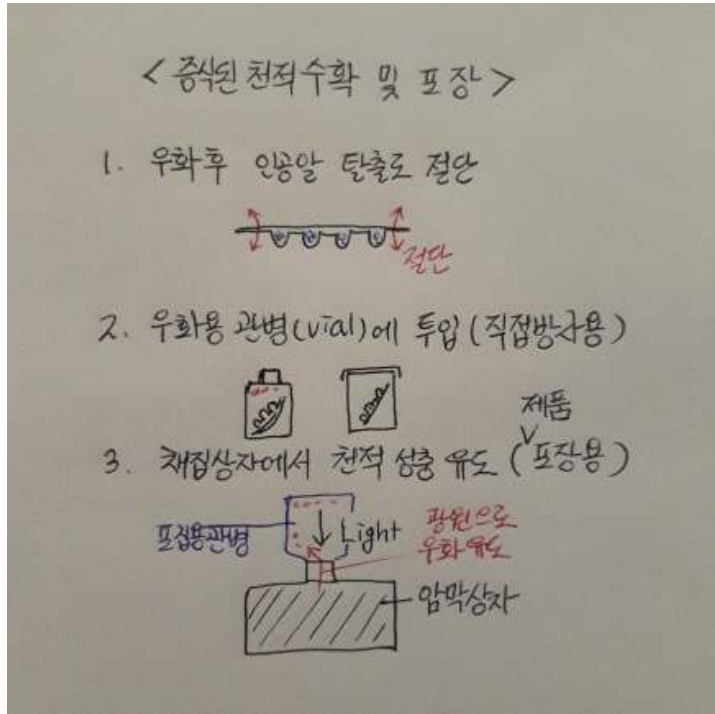 < 증식된 천적수확 및 포장 >
1. 우화후 인공알 탈출도 절단
절단
2. 우화용 관병(vial)에 투입 (직접방사용)
제품
3. 채집상자에서 천적 성충 유도 (포장용)
포집용관병
Light
광원으로
우화유도
암막상자